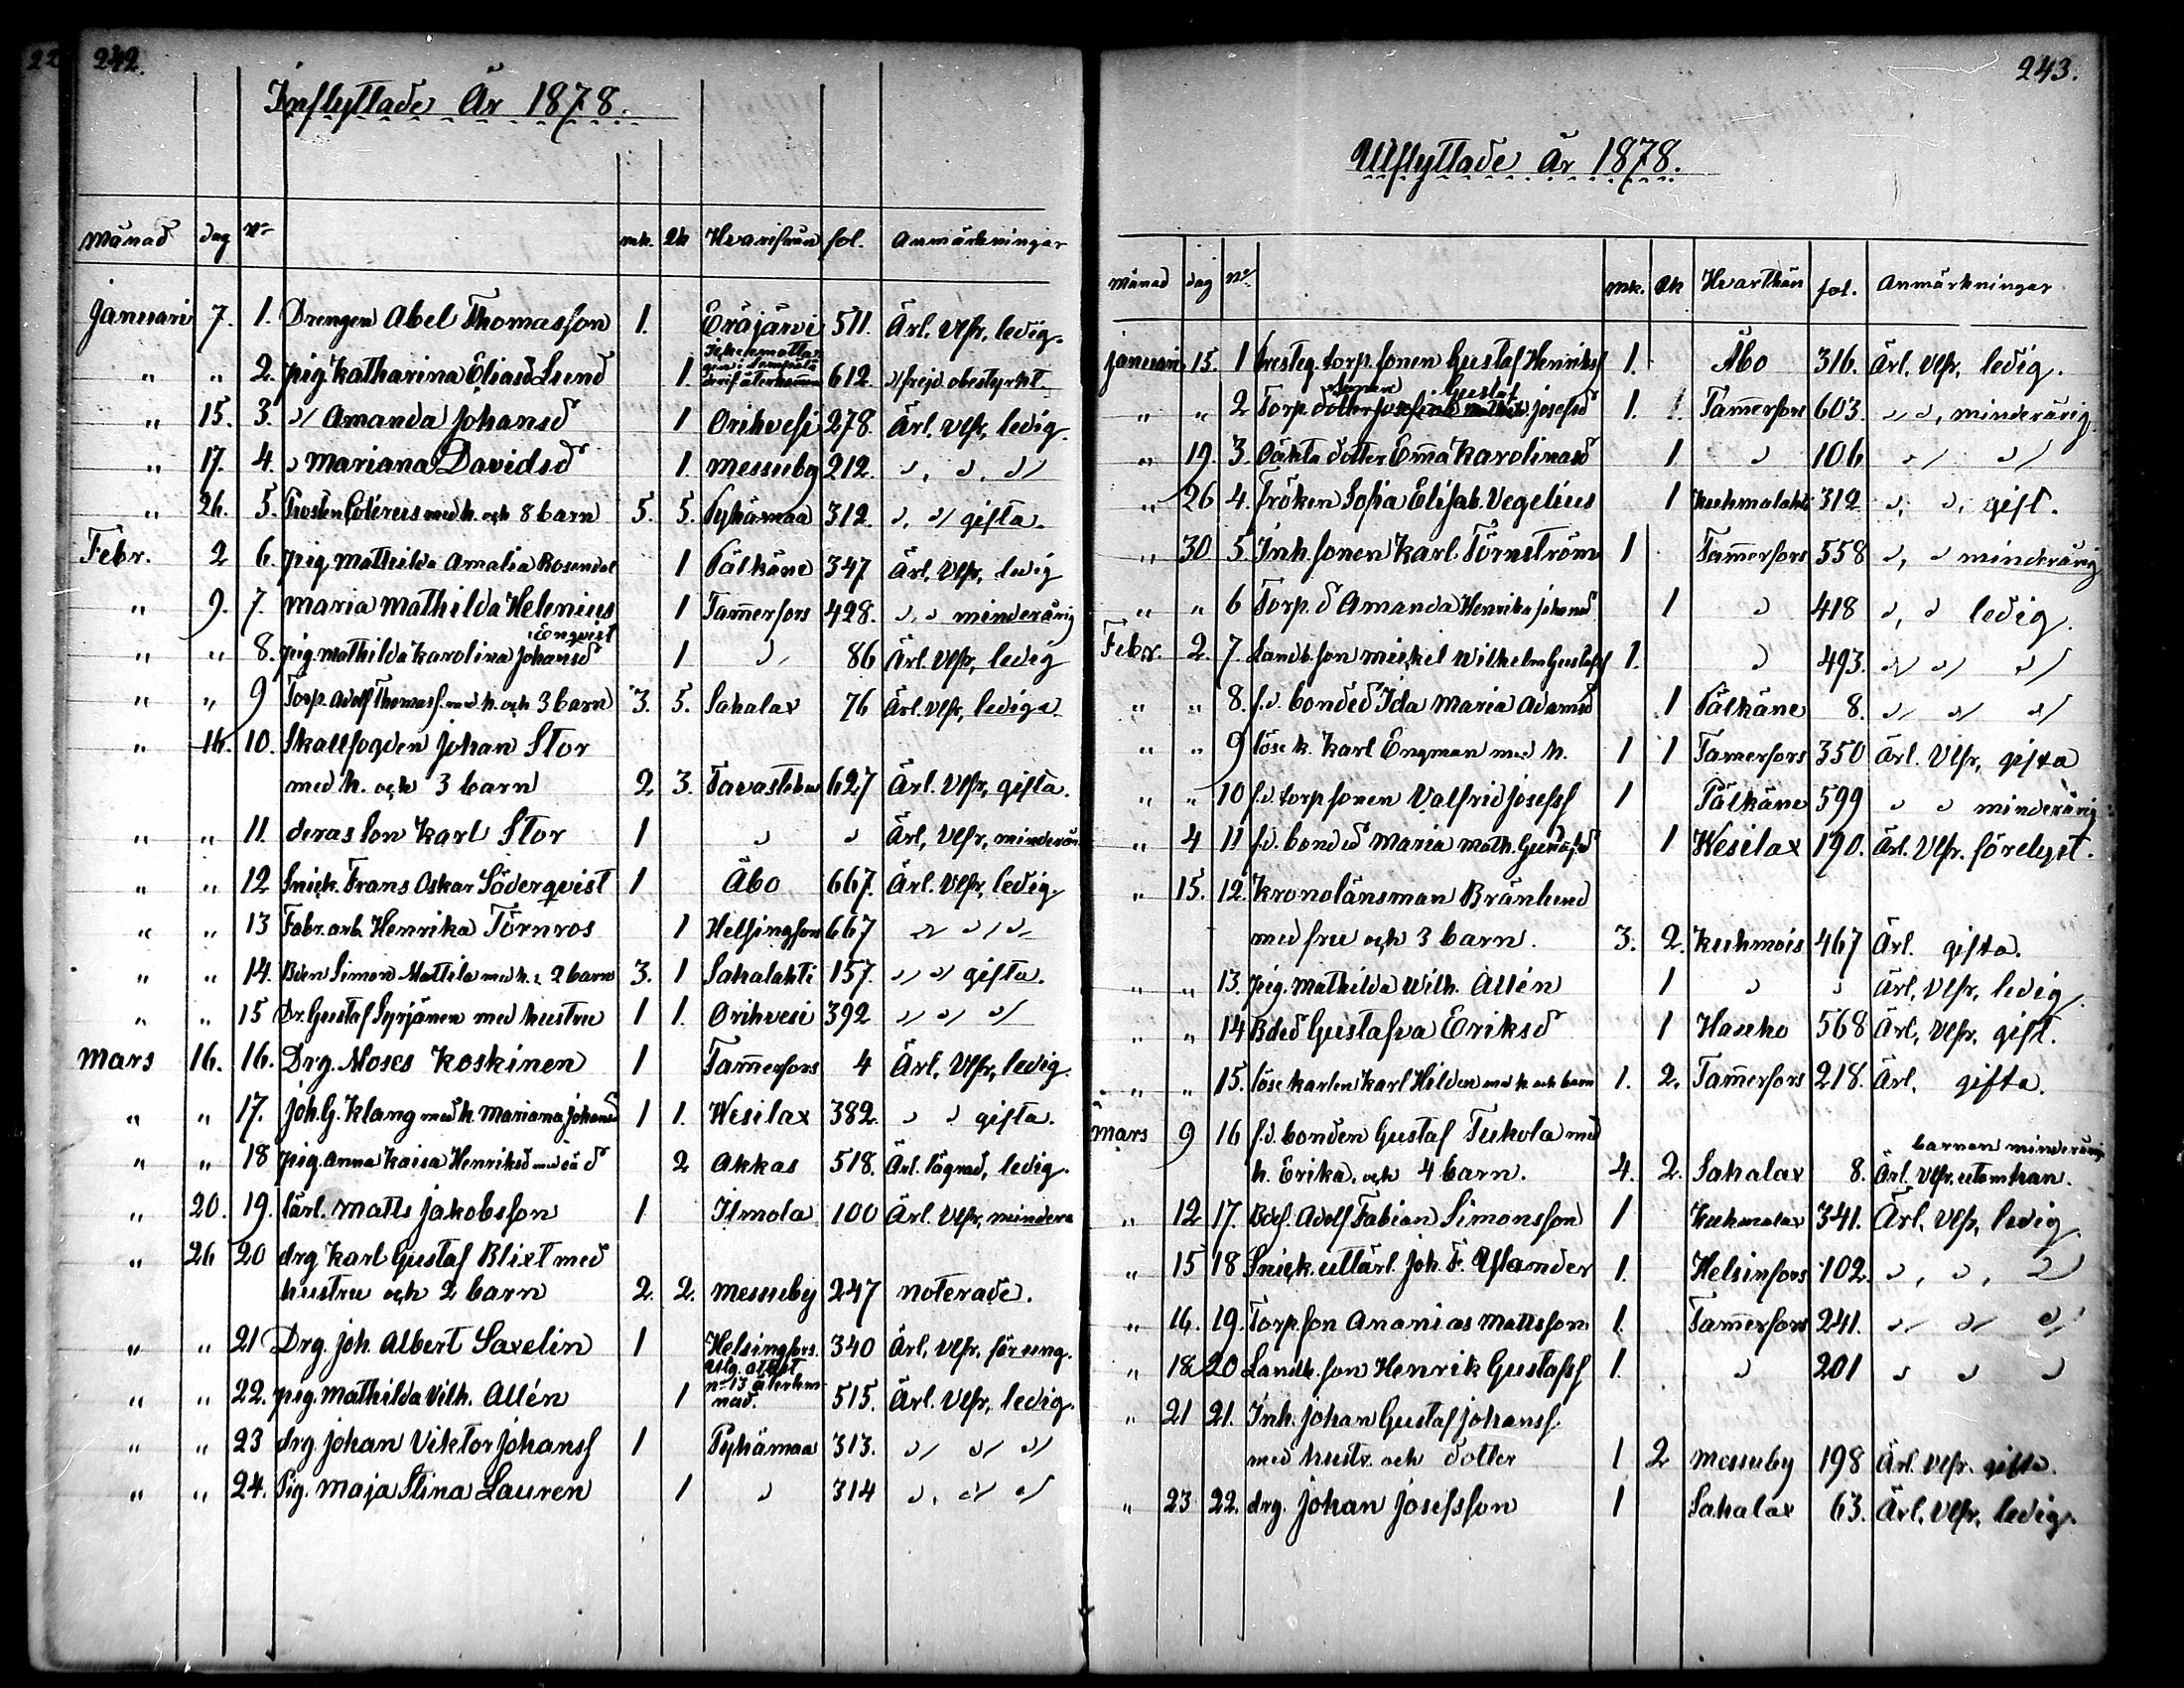 242.
Inflyttade År 1878.
månad dag No mk. Qk Hvarifrån fol. Anmärkningar
januari 7. 1. Drengen Abel Thomasson 1. Eräjärvi 511. Ärl. Vlfr, ledig.
" " 2. pig. Katharina Eliasd Lund 1. återkommen 612. " frejd obestyrkt.
" 15. 3. " Amanda Johansd 1 Orihvesi 278. Ärl. Vlfr, ledig.
" 17. 4. " Mariana Davidsd 1. Messuby 212. " " "
" 26. 5. Prosten Cotéreus med h. och 8 barn 5. 5. Pyhämaa 312. " " gifta.
Febr. 2 6. pig Mathilda Amalia Rosendal 1 Pälkäne 347 Ärl. Vlfr, ledig
" 9. 7. Maria Mathilda Helenius 1 Tammerfors 428. " " minderårig
Enqvist
" " 8. pig. Mathilda Karolina Johansd 1 " 86 Ärl. Vlfr, ledig
" " 9 Torp. Adolf Thomass. med h. och 3 barn 3. 5. Sahalax 76 Ärl. Vlfr, lediga.
" 16. 10. Skallfogden Johan Stor
med h. och 3 barn 2 3. Tavastehus 627 Ärl. Vlfr, gifta.
" " 11. deras son Karl Stor 1 " " Ärl, Vlfr, minderår
" " 12 Snick. Frans Oskar Söderqvist 1 Åbo 667. Ärl. Vlfr, ledig.
" " 13 Fabr. arb. Henrika Törnros 1 Helsingfors 667 " " "
" " 14. Bden Simon Mattila med h. o 2 barn 3. 1 Sahalahti 157. " " gifta.
" " 15 Dr. Gustaf Syrjänen med hustru 1 1. Orihvesi 392 " " "
mars 16. 16. Drg. Moses Koskinen 1 Tammerfors 4 Ärl, Vlfr, ledig.
" " 17. Joh. G. Klang med h. Mariana Johansd 1 1. Wesilax 382. " " gifta.
" " 18 pig. Anna Kaisa Henriksd med oä d 2 Akkas 518. Ärl. lägrad, ledig.
" 20. 19. lärl. Matts Jakobsson 1 Ilmola 100 Ärl. Vlfr, mindera
" 26 20 drg Karl Gustaf Blixt med
hustru och 2 barn 2. 2. Messuby 247 noterade.
" " 21 Drg. Joh. Albert Saxelin 1 Helsingfors. 340 Ärl, Vlfr. för ung.
" " 22. pig. Mathilda Vilh. Allén 1 Utg. attest no 13 återläm nad. 515. Ärl. Vlfr, ledig.
" " 23 drg. Johan Viktor Johanss 1 Pyhämaa 313. " " "
" " 24. Pig. Maja Stina Lauren 1 " 314 " " "
243.
Utflyttade År 1878.
månad dag No mk. Qk Hvarthän fol. Anmärkningar
januari 15. 1 torp. sonen Gustaf Henrikss 1. Åbo 316. Ärl. Vlfr, ledig.
sonen Gustaf
" " 2 Torp. dotter Josefina Mathil. Josefsd 1. 1 Tammerfors 603. " ", minderårig
" 19. 3. Oäkta dotter Emma Karolinasd 1 " 106 " "
" 26 4. Fröken Sofia Elisab. Vegelius 1 Kuhmalahti 312 " " gift.
" 30 5. Inh. sonen Karl Törnström 1 Tammerfors 558 " " minderårig
" " 6 Torp. d Amanda Henrika Johansd 1 " 418 " " ledig.
Febr. 2 7. Landb. son Mickel Wilhelm Gustafss 1. " 493. " " "
" " 8. f.d. bonded Ida Maria Adamsd 1 Pälkäne 8. " " "
" " 9 löse k. Karl Engman med h. 1 1 Tamerfors 350 Ärl. Vlfr, gifta
" " 10 f.d. torp sonen Valfrid Josefss 1 Pälkäne 599 " " minderårig
" 4 11 f.d. bonded Maria Math. Gustafsd 1 Wesilax 190. Ärl. Vlfr. förelyst.
" 15. 12. Kronolänsman Brånlund
med fru och 3 barn. 3. 2. Kuhmois 467 Ärl. gifta.
" " 13. pig. Mathilda Wilh. Allén 1 " " Ärl, Vlfr, ledig.
" " 14 Bded Gustafva Eriksd 1 Hauho 568 Ärl, Vlfr, gift.
" " 15. löse karlen Karl Hilden med h och barn 1. 2. Tammerfors 218. Ärl, gifta.
mars 9 16 f.d. bonden Gustaf Tukola med
barnen minderårig
h. Erika. och 4 barn. 4. 2. Sahalax 8. Ärl. Vlfr. utom han.
" 12 17. Bdes. Adolf Fabian Simonsson 1 Kuhmalax 341. Ärl, Vlfr, ledig
" 15 18 Snick. utlärl. Joh. F. Ylander 1. Helsinfors 102. " " "
" 16. 19. Torp. son Ananias Mattsson 1. Tammerfors 241. " " "
" 18 20 Landb. son Henrik Gustafss 1. " 201 " " "
" 21 21. Inh. Johan Gustaf Johanss.
med hustr. och dotter 1 2 Messuby 198 Ärl. Vlfr. gifta.
" 23 22. drg. Johan Josefsson 1 Sahalax 63. Ärl. Vlfr, ledig.